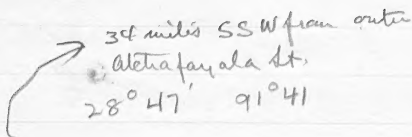 34 miles SSW from outer
Atchafayala Lt.
28° 47' 91° 41